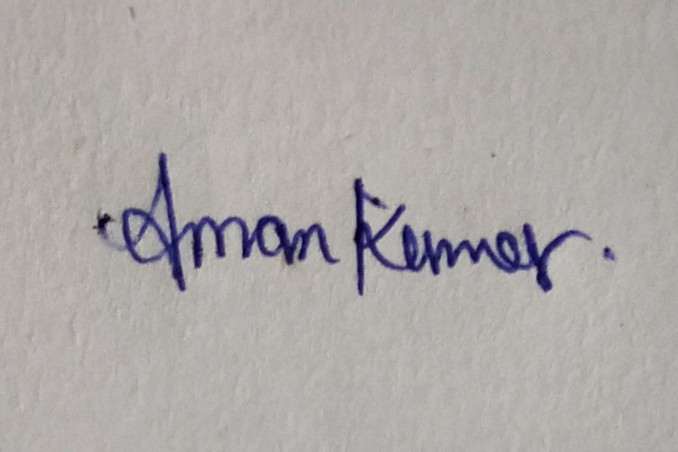 Aman Kumar.